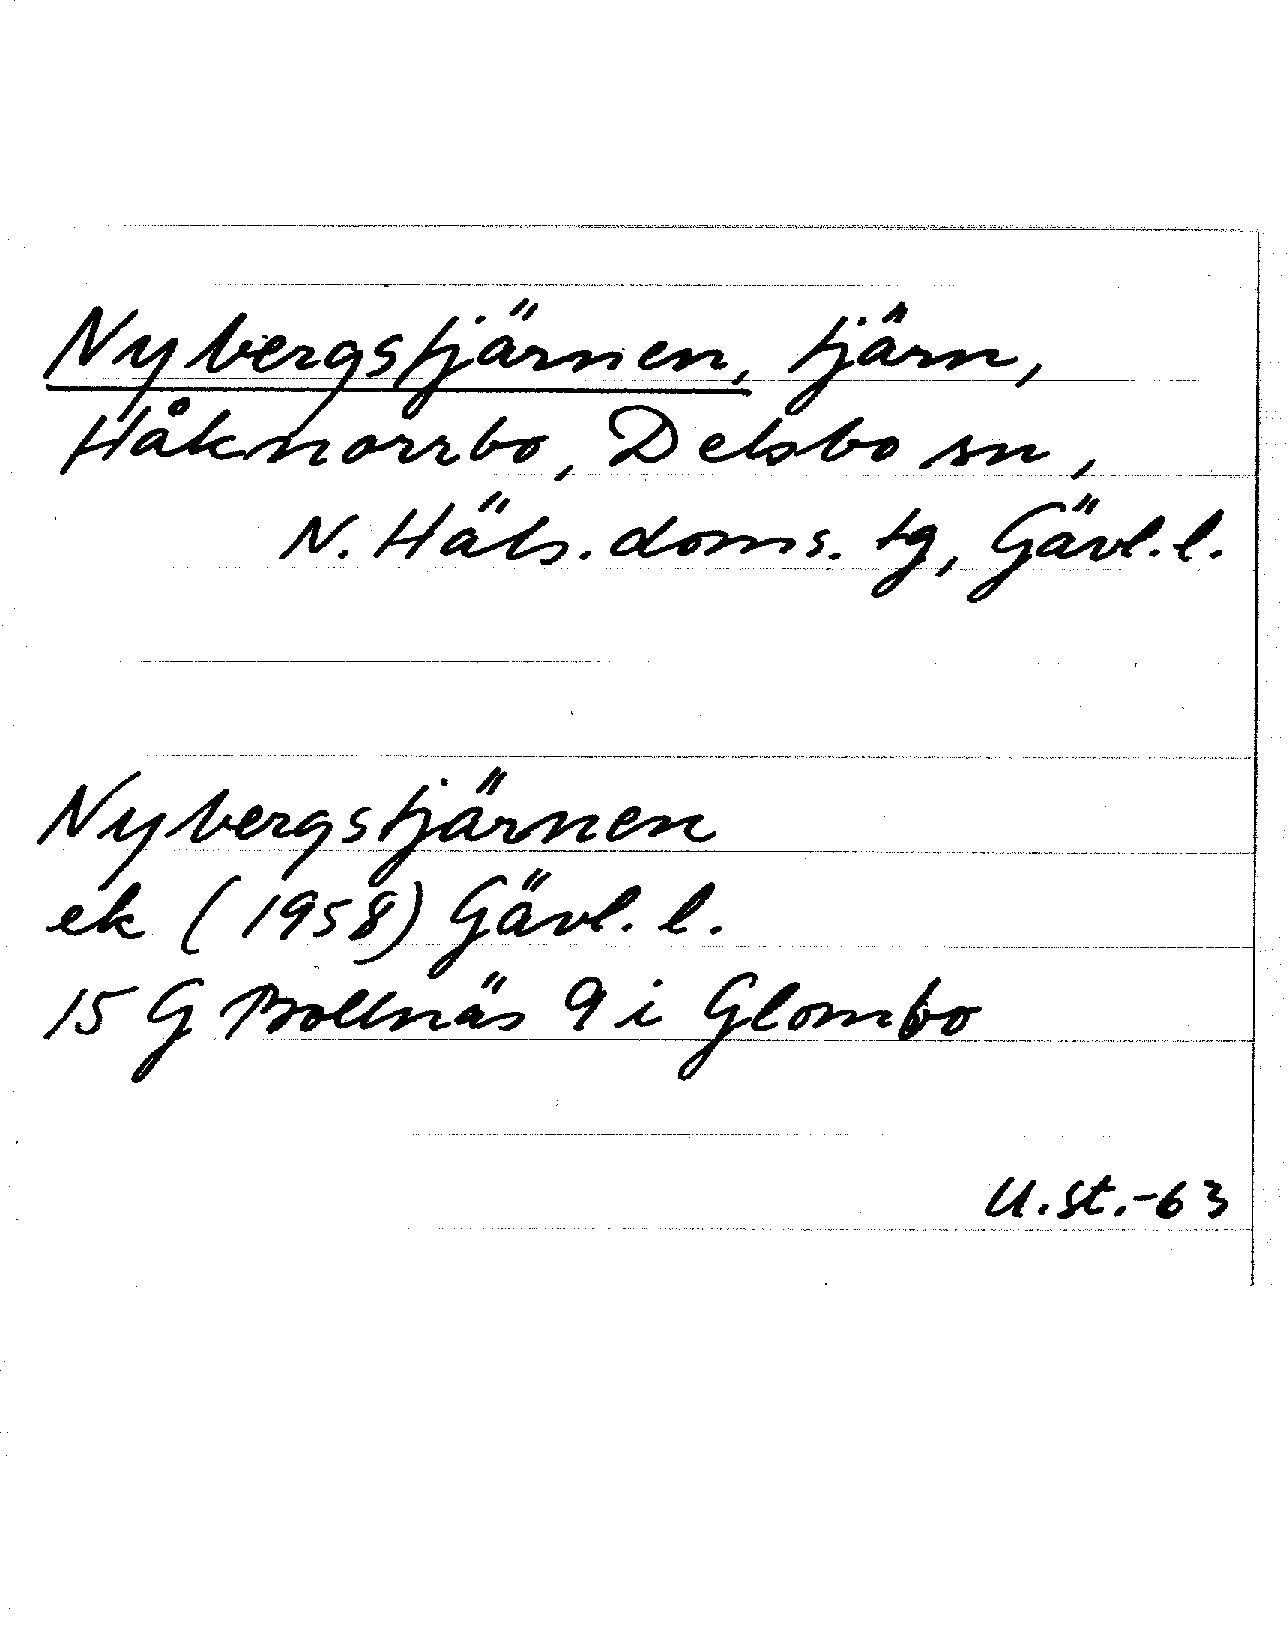 Nybergstjärnen, tjärn,
Håknorrbo, Delsbo sn,
N. Häls. doms. tg, Gävl. l.
Nybergstjärnen
ek (1958) Gävl. l.
15 G Bollnäs 9 i Glombo
U. St. -63